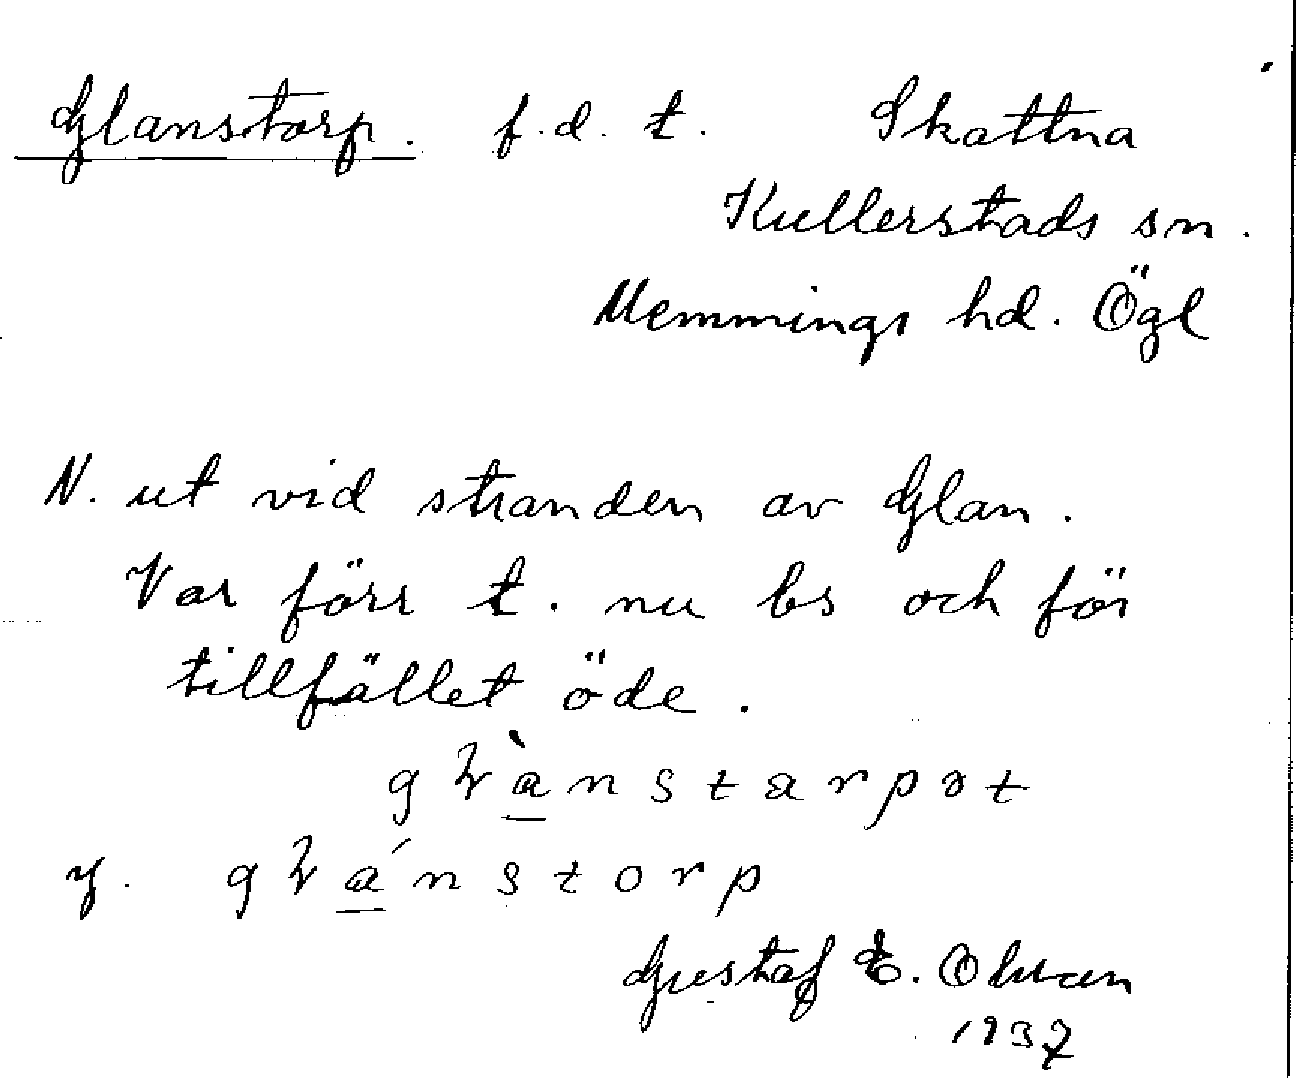 Glanstorp. f.d. t. Skattna
Kullerstads sn.
Memmings hd. Ögl
N. ut vid stranden av Glan.
Var förr t. nu bs och för
tillfället öde.
gɫà̱nstarpət
y. gɫá̱nstorp
Gustaf E. Olsson
1937